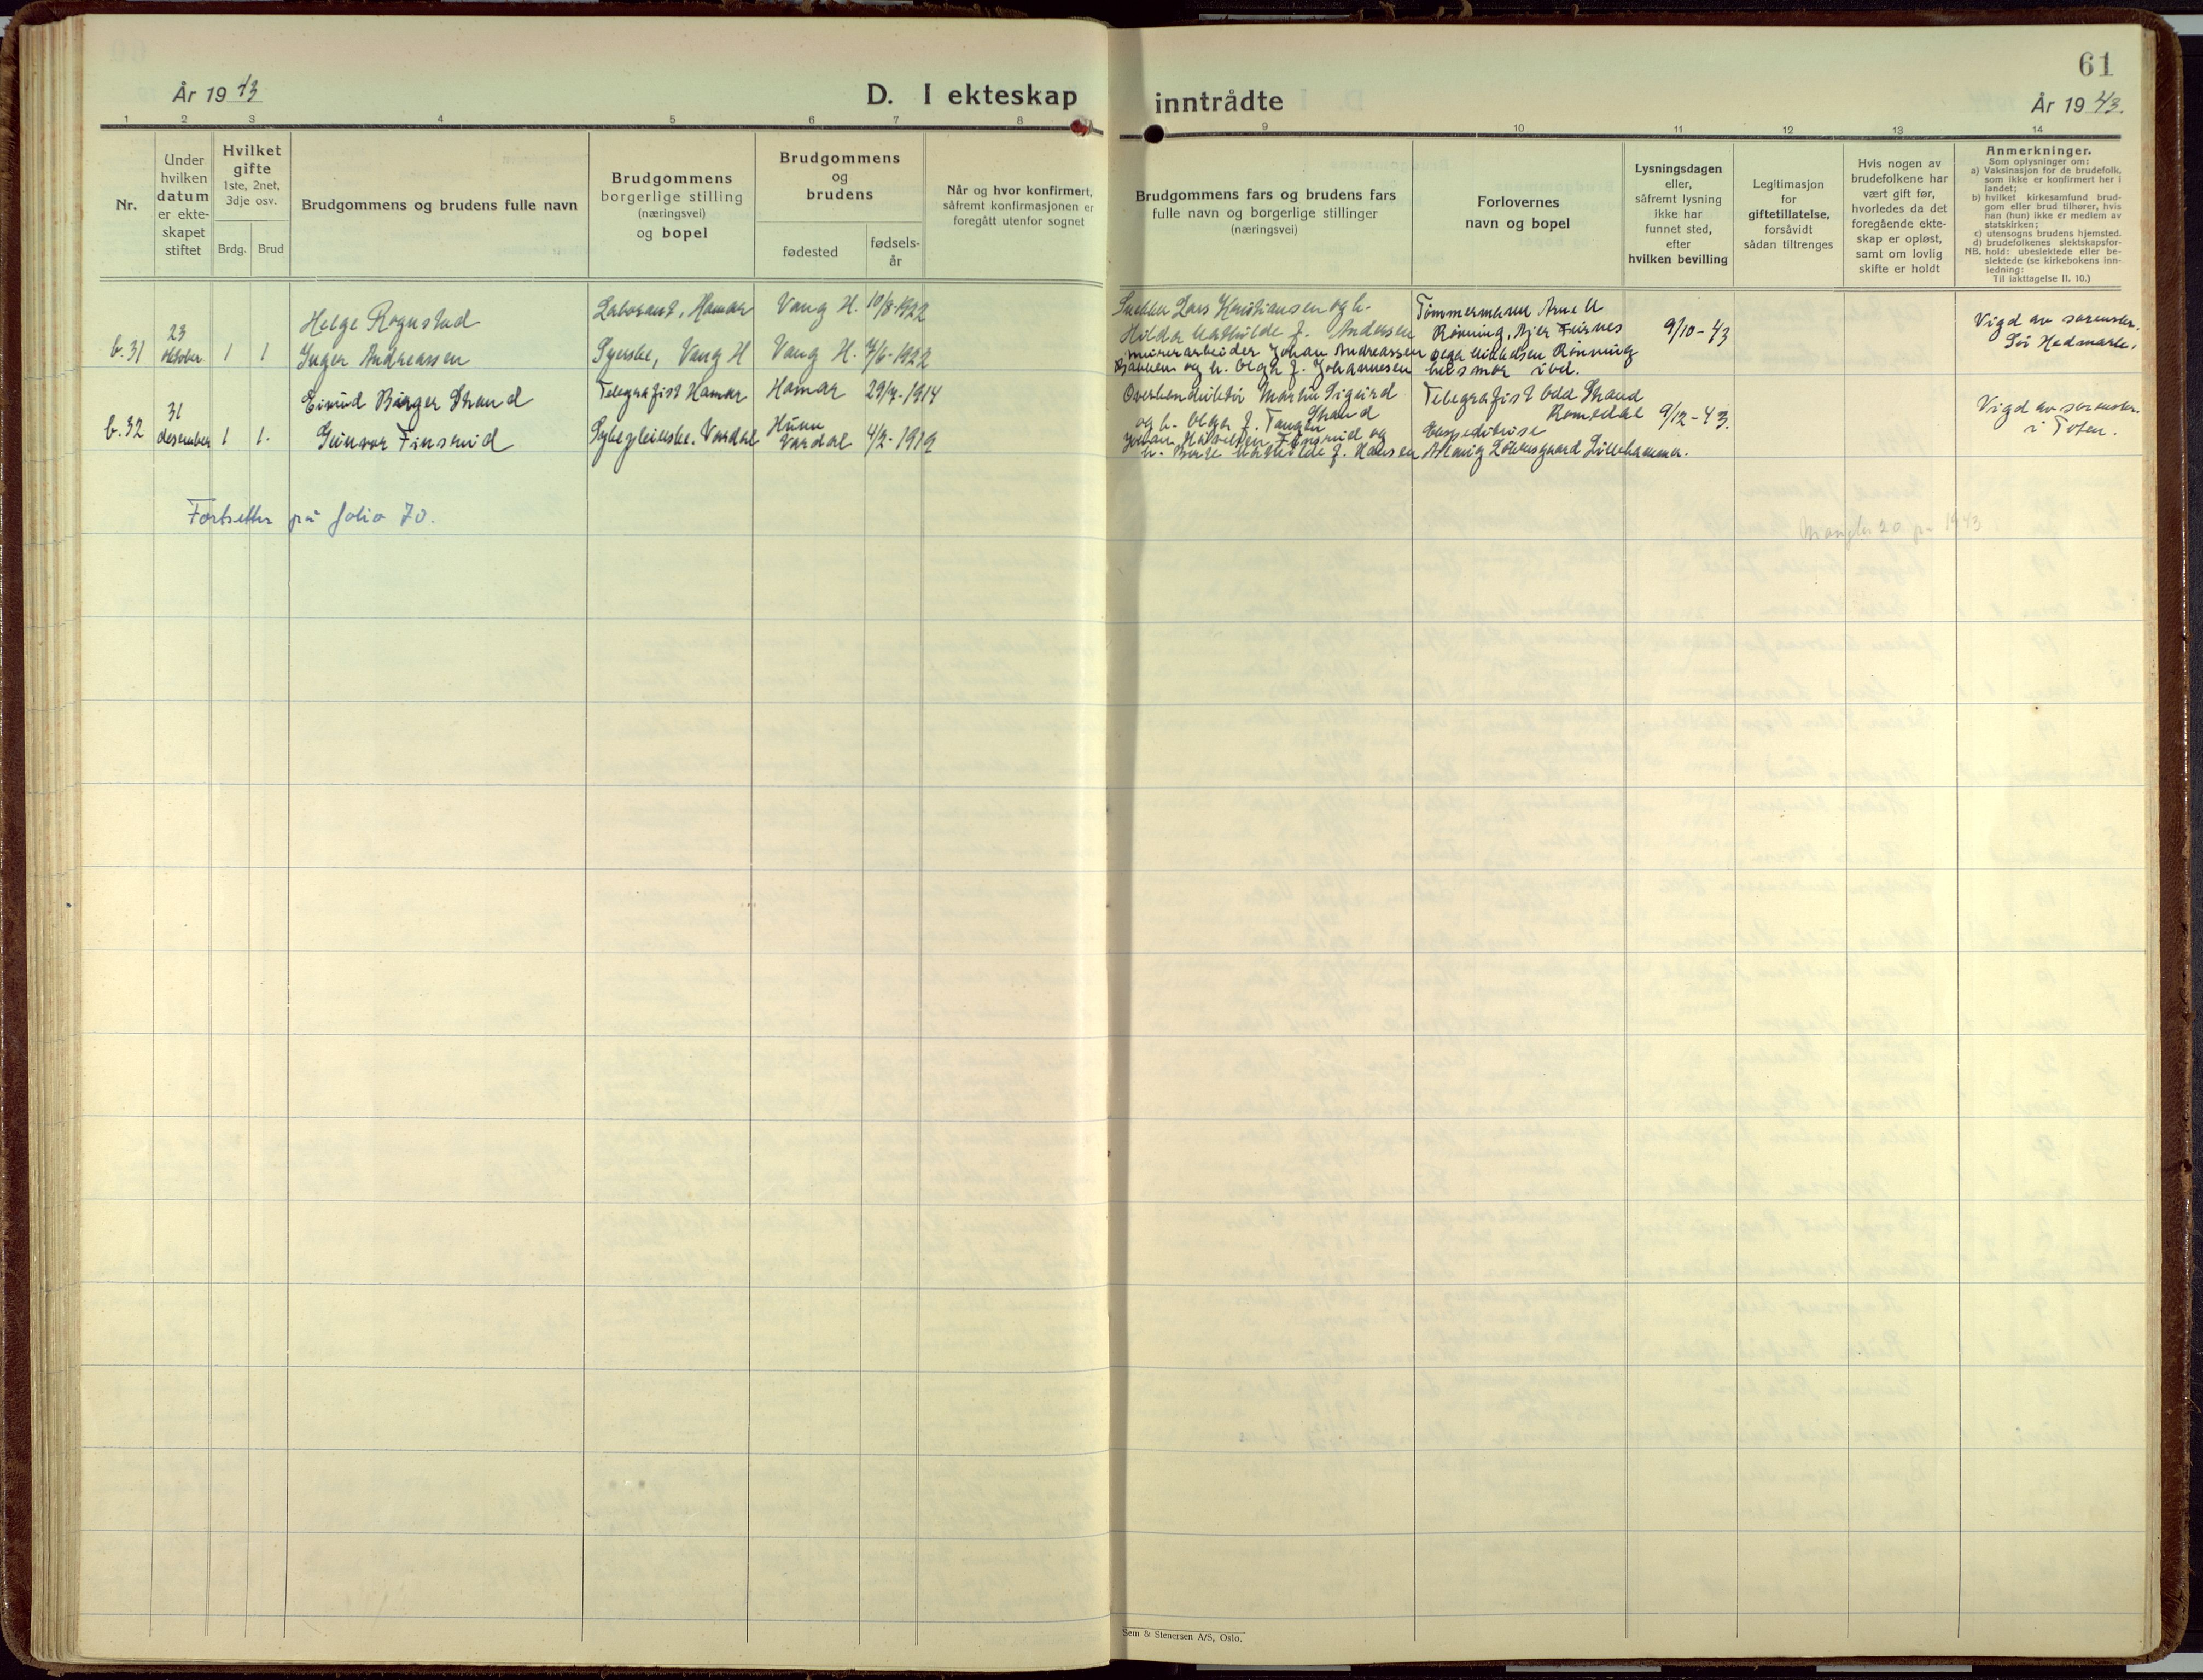 61
År 1943
D. I ekteskap inntrådte
År 1943.
1 2 3 4 5 6 7 8 9 10 11 12 13 14
Nr.
Under
hvilken
datum
er ekte-
skapet
stiftet
Hvilket
gifte
1ste, 2net,
3dje osv.
Brdg. Brud
Brudgommens og brudens fulle navn
Brudgommens
borgerlige stilling
(næringsvei)
og bopel
Brudgommens
og
brudens
fødested
fødsels-
år
Når og hvor konfirmert,
såfremt konfirmasjonen er
foregått utenfor sognet
Brudgommens fars og brudens fars
fulle navn og borgerlige stillinger
(næringsvei)
Forlovernes
navn og bopel
Lysningsdagen
eller,
såfremt lysning
ikke har
funnet sted,
efter
hvilken bevilling
Legitimasjon
for
giftetillatelse,
forsåvidt
sådan tiltrenges
Hvis nogen av
brudefolkene har
vært gift før,
hvorledes da det
foregående ekte-
skap er opløst,
samt om lovlig
skifte er holdt
Anmerkninger.
Som oplysninger om:
a) Vaksinasjon for de brudefolk,
som ikke er konfirmert her i
landet;
b) hvilket kirkesamfund brud-
gom eller brud tilhører, hvis
han (hun) ikke er medlem av
statskirken;
c) utensogns brudens hjemsted.
d) brudefolkenes slektskapsfor-
NB. hold: ubeslektede eller be-
slektede (se kirkebokens inn-
ledning:
Til iakttagelse II. 10.)
b. 31
23
oktober
1 1
Helge Rognstad
Inger Andreassen
Laborant, Hamar
Syerske, Vang H
Vang H. 10/8-1922
Vang H. 14/6-1922
Snekker Lars Kristiansen og h.
Hilda Mathilde f. Andersen
murerarbeider Johan Andreassen
og h. Olga f. Johannesen
Tømmermann Arne M
Rønning, Ajer Furnes
Olga Mikkelsen Rønning
husmor ibd.
9/10-43
Vigd av sorenskr.
Sør Hedmark.
b. 32
31
desember
1 1.
Eivind Birger Strand
Gunvor Finsrud
Telegrafist Hamar
Sykepleierske. Vardal
Hamar 29/7-1914
Hunn
Vardal 4/2-1919
Overkonduktør Martin Sigurd
Strand
og h. Olga f. Tangen
Johan Halvelsen Finsrud og
h. Berte Mathilde f. Hansen
Telegrafist Odd Strand
Romedal
Ekspeditrise
Aslaug Løkensgaard Lillehammer.
9/12-43.
Vigd av sorenskr.
i Toten.
Fortsetter på folio 70.
Mangler 20 på 1943
Sem & Stenersen A/S, Oslo.